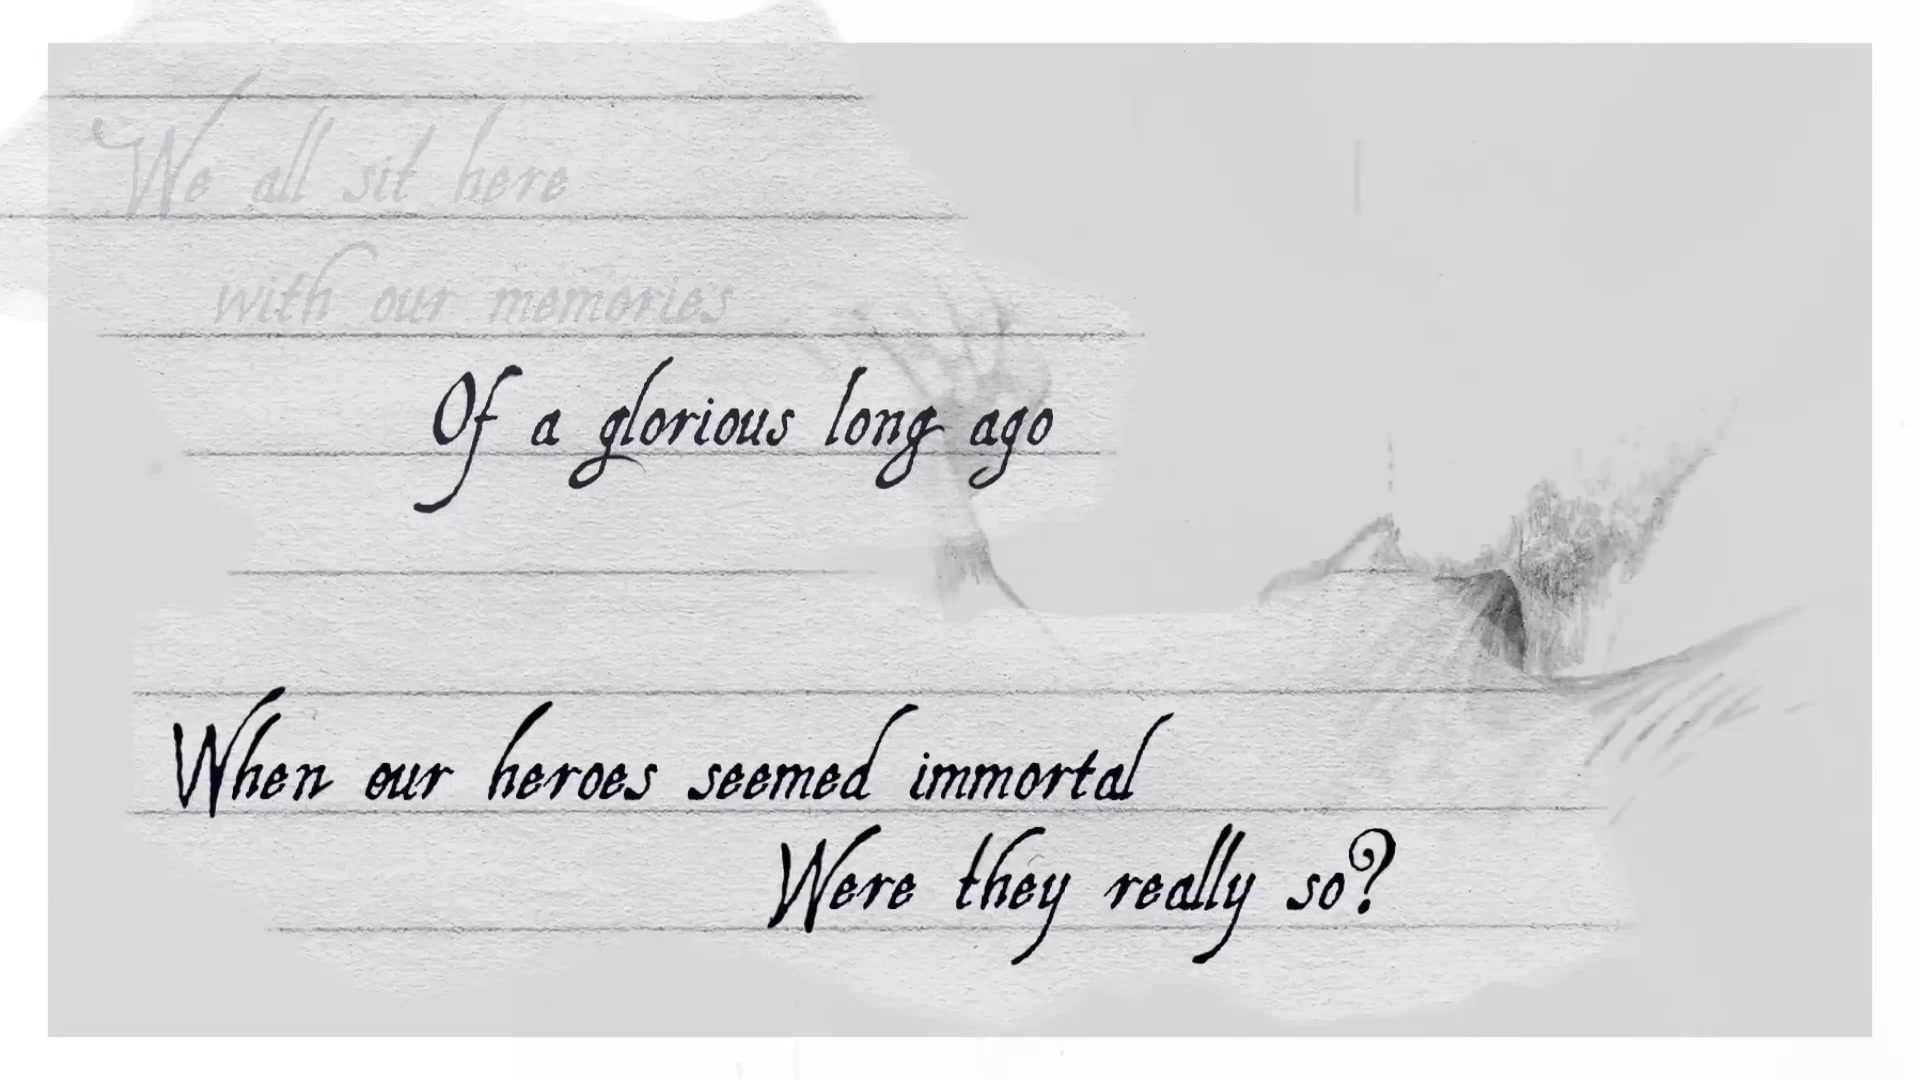 We all sit here
with our memories
Of a glorious long ago
When our heroes seemed immortal
Were they really so?